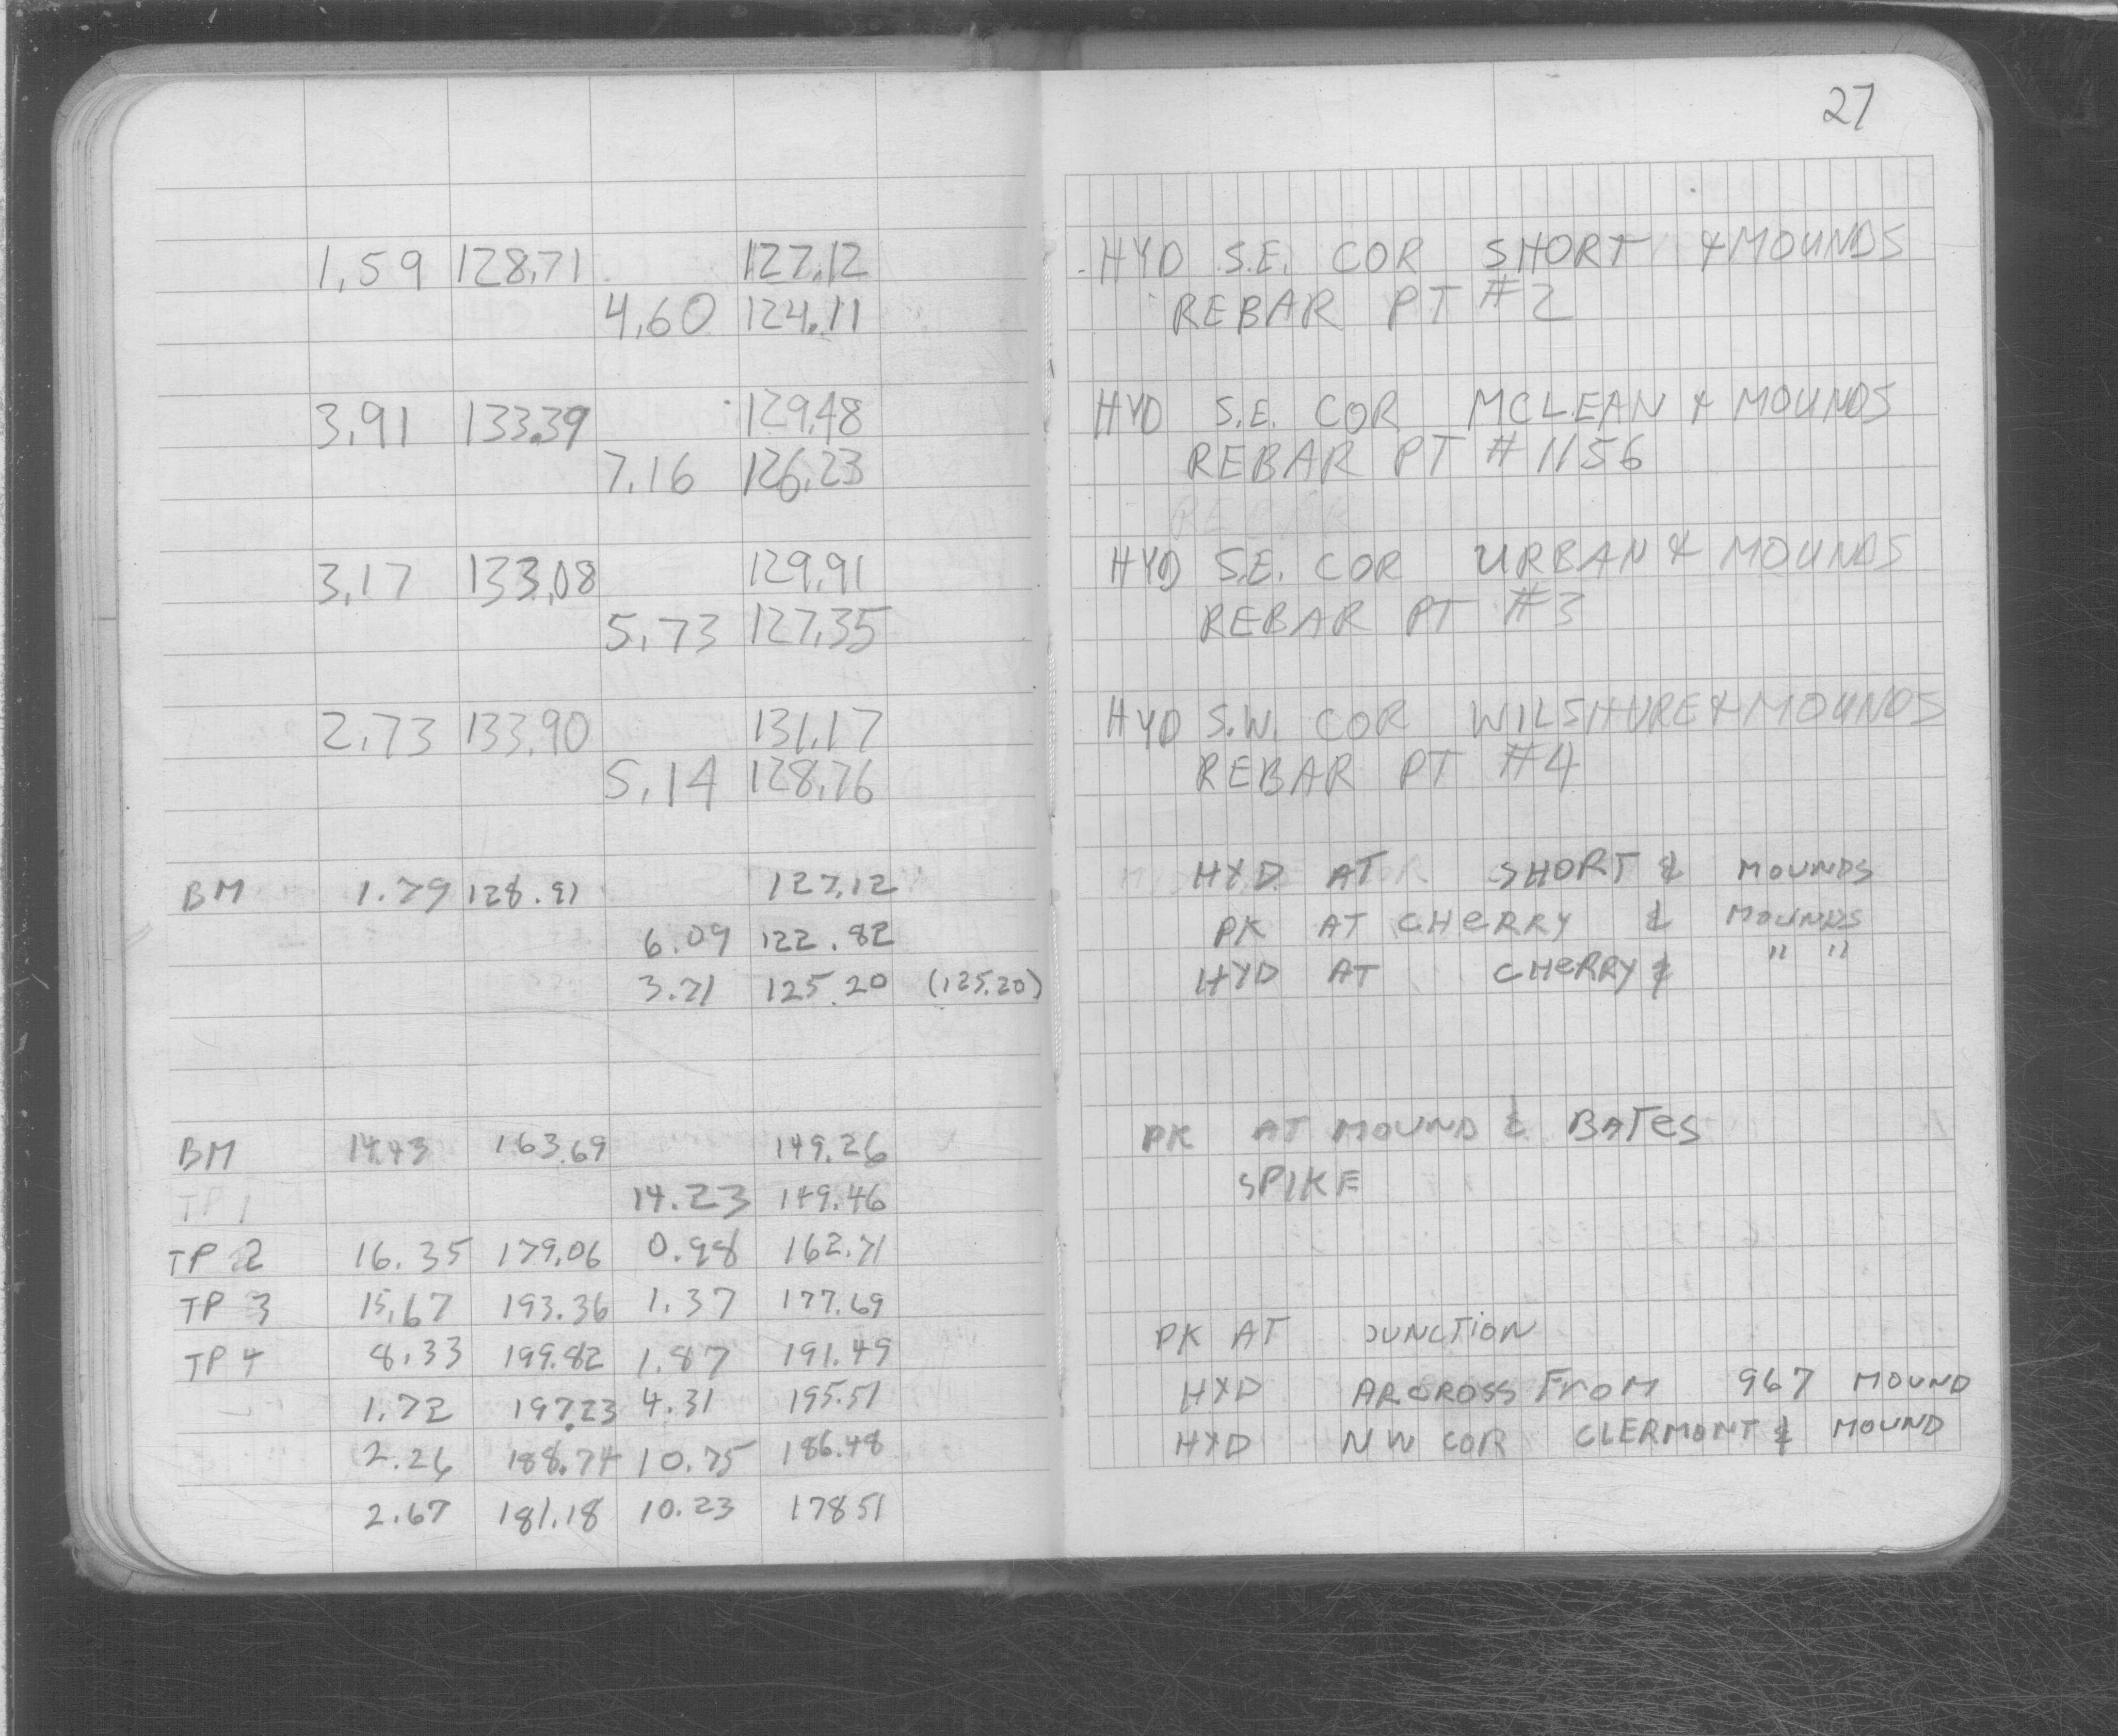 27
1.59 128.71 127.12 HYD S.E. COR SHORT & MOUNDS
4.60 124.11 REBAR PT #2
3.91 133.39 129.48 HYD S.E. COR MCLEAN & MOUNDS
7.16 126.23 REBAR PT #1156
3.17 133.08 129.91 HYD S.E. COR URBAN & MOUNDS
5.73 127.35 REBAR PT #3
2.73 133.90 131.17 HYD S.W. COR WILSHURE & MOUNDS
5.14 128.76 REBAR PT #4
BM 1.79 128.91 127.12 HYD AT SHORT & MOUNDS
6.09 122.82 PK AT CHERRY & MOUNDS
3.71 125.20 (125.20) HYD AT CHERRY & " "
BM 14.43 163.69 149.26 PK AT MOUND & BATES
TP 1 14.23 149.46 SPIKE
TP 2 16.35 179.06 0.98 162.71
TP 3 15.67 193.36 1.37 177.69
TP 4 8.33 199.82 1.87 191.49 PK AT JUNCTION
1.72 197.23 4.31 195.51 HYD ARCROSS FROM 967 MOUND
2.26 188.74 10.75 186.48 HYD NW COR CLERMONT & MOUND
2.67 181.18 10.23 178 51